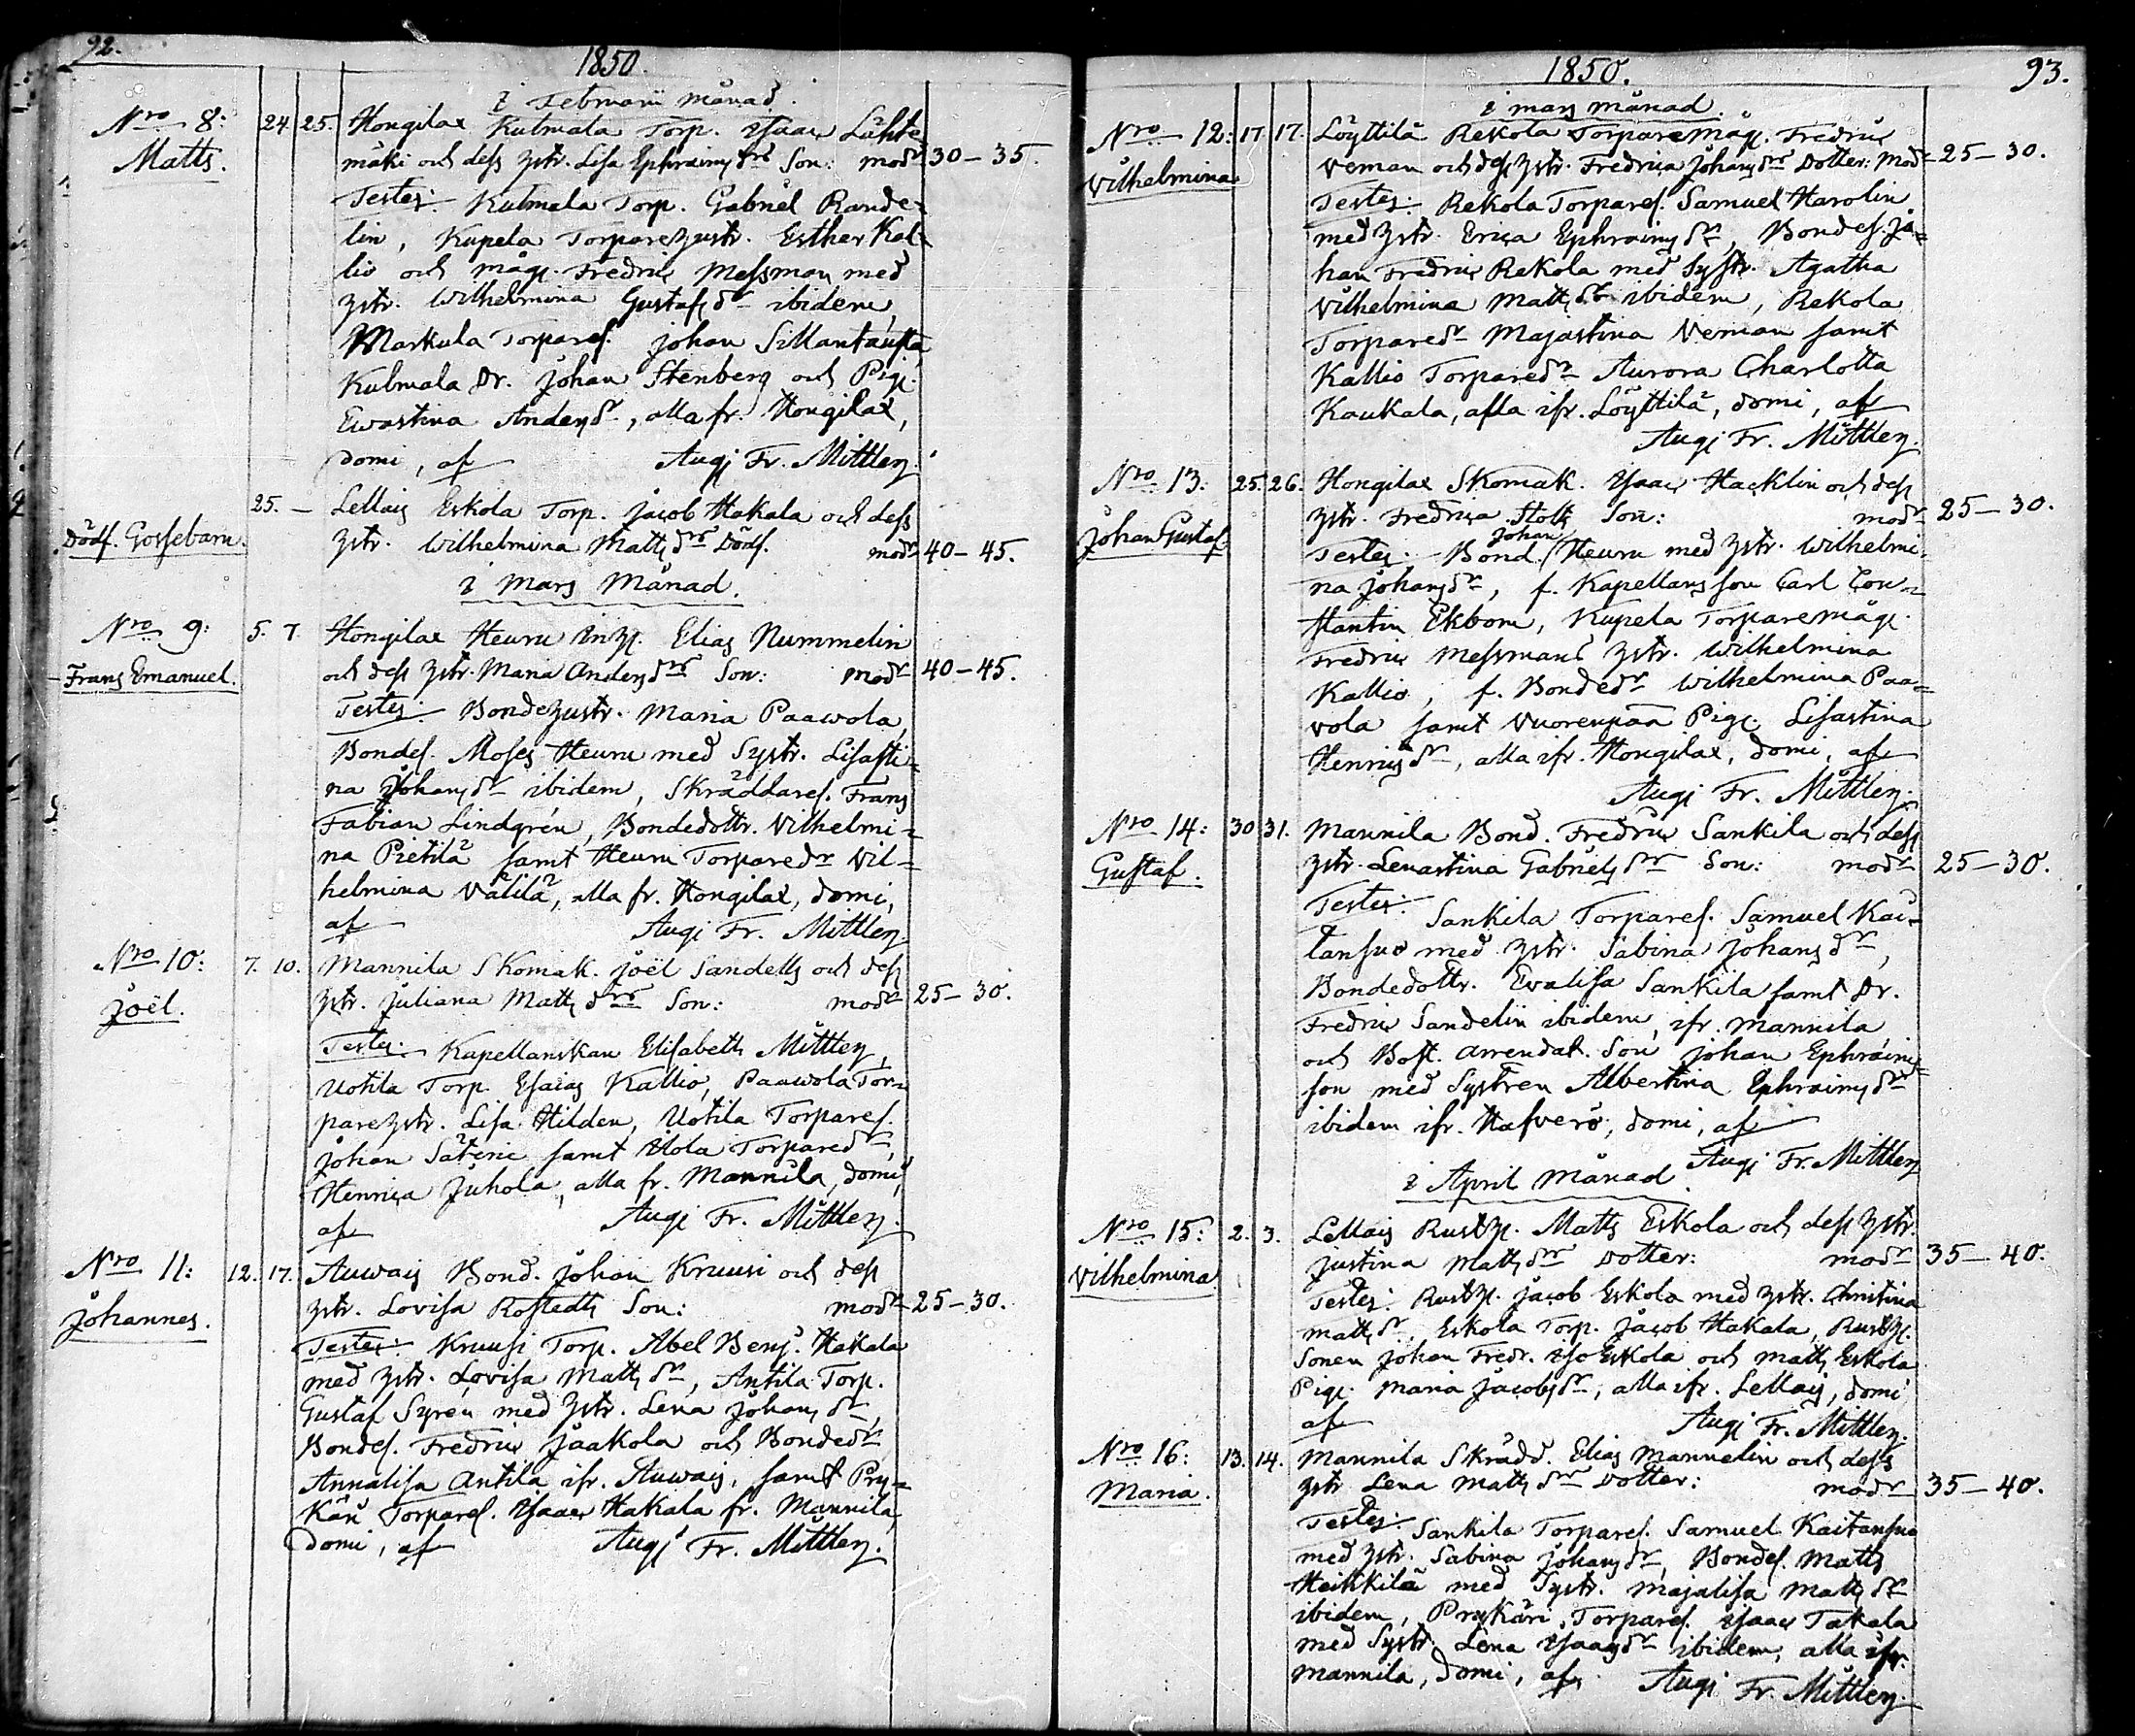 92.
1850.
i Februarii månad.
Nro 8: 24. 25. Hongilax Kulmala Torp. Isaac Lähte
Matts. mäki och dess hstr. Lisa Ephraimsdrs Son: modr 30-35.
Testes: Kulmala Torp. Gabriel Rande-
lin, Kupela Torparehustr. Esther Kal-
lio och måg. Fredric Messman med
hstr. Wilhelmina Gustafsdr ibidem,
Markula Torpares. Johan Sillantausta
Kulmala Dr. Johan Stenberg och Pig.
Evastina Andersdr, alla fr. Hongilax,
domi, af Augi Fr. Mittler.
25. - Lellais Eskola Torp. Jacob Hakala och dess
Dödf. Gossebarn. hstr. Wilhelmina Mattsdrs Dödf. modr 40-45.
i Mars Månad.
Nro 9: 5. 7. Hongilax Heuru Inh. Elias Nummelin
Frans Emanuel. och dess hstr. Maria Andersdrs Son: modr 40-45.
Testes: Bondehustr. Maria Paavola,
Bondes. Moses Heuru med Systr. Lisasti-
na Johansdr ibidem, Skräddares. Frans
Fabian Lindgrén, Bondedottr. Vilhelmi-
na Pietilä samt Heuru Torparedr Vil-
helmina Välilä, alla fr. Hongilax, domi,
af Augi Fr. Mittler
Nro 10: 7. 10. Mannila Skomak. Joël Sandells och dess
Joël. hstr. Juliana Mattsdrs Son: modr 25-30.
Testes: Kapellanskan Elisabeth Mittler,
Uotila Torp. Esaias Kallio, Paavola Tor-
parehstr. Lisa Hilden, Uotila Torpares.
Johan Säteri samt Uola Torparedr,
Henrica Juhola, alla fr. Mannila, domi,
af Augi Fr. Mittler.
Nro 11: 12. 17. Auvais Bond. Johan Kruusi och dess
Johannes. hstr. Lovisa Rostedts Son: modr 25-30.
Testes: Kruusi Torp. Abel Benj. Hakala
med hstr. Lovisa Mattsdr, Antila Torp.
Gustaf Syrén med hstr. Lena Johansdr,
Bondes. Fredric Jaakola och Bondedr
Annalisa Antila ifr. Auvais, samt Pry-
käri Torpares. Isaac Hakala fr. Mannila,
domi, af Augi Fr. Mittler.
1850.
93.
i mars månad.
Nro 12: 17. 17. Löyttilä Rekola Torparemåg. Fredric
Vilhelmina Veman och dess hstr. Fredrica Johansdrs Dotter: Modr 25-30.
Testes: Rekola Torpares. Samuel Harolin
med hstr. Erica Ephraimsdr, Bondes. Jo-
han Fredric Rekola med Systr. Agatha
Vilhelmina Mattsdr ibidem, Rekola
Torparedr Majastina Veman samt
Kallio Torparedr Aurora Charlotta
Kaukala, alla ifr. Löyttilä, domi, af
Augi Fr. Mittler.
Nro 13: 25. 26. Hongilax Skomak. Isaac Hacklin och dess
Johan Gustaf. hstr. Fredrica Stolts Son: modr 25-30.
Testes: Bond. Johan Heuru med hstr. Wilhelmi-
na Johansdr, f. Kapellans son Carl Con-
stantin Ekbom, Kupela Torparemåg.
Fredric Messmans hstr. Wilhelmina
Kallio, f. Bondedr Wilhelmina Paa-
vola samt Vuorenpää Pig. Lisastina
Henricsdr, alla ifr. Hongilax, domi, af
Augi Fr. Mittler.
Nro 14: 30. 31. Mannila Bond. Fredric Sankila och dess
Gustaf. hstr. Lenastina Gabrielsdrs Son: modr 25-30.
Testes: Sankila Torpares. Samuel Kai-
tansuo med hstr. Sabina Johansdr,
Bondedottr. Evalisa Sankila samt Dr.
Fredric Sandelin ibidem, ifr. Mannila
och Bost. arrendat. Son Johan Ephraims-
son med Systren Albertina Ephraimsdr
ibidem ifr. Hafverö, domi, af
Augi Fr. Mittler
i April Månad.
Nro 15: 2. 3. Lellais Rusth. Matts Eskola och dess hstr.
Vilhelmina Justina Mattsdrs Dotter: modr 35-40.
Testes: Rusth. Jacob Eskola med hstr. Christina
Mattsdr, Eskola Torp. Jacob Hakala, Rusth.
Sonen Johan Fredr. Iso Eskola och Matts Eskola
Pig. Maria Jacobsdr, alla ifr. Lellais, domi
af Augi Fr. Mittler.
Nro 16: 13. 14. Mannila Skrädd. Elias Mannelin och dess
Maria. hstr Lena Mattsdrs Dotter: modr 35-40.
Testes: Sankila Torpares. Samuel Kaitansuo
med hstr. Sabina Johansdr, Bondes. Matts
Heikkilä med Systr. Majalisa Mattsdr
ibidem, Prykäri Torpares. Isaac Takala
med Systr. Lena Isaacsdr ibidem, alla ifr.
Mannila, domi, af Augi Fr. Mittler.